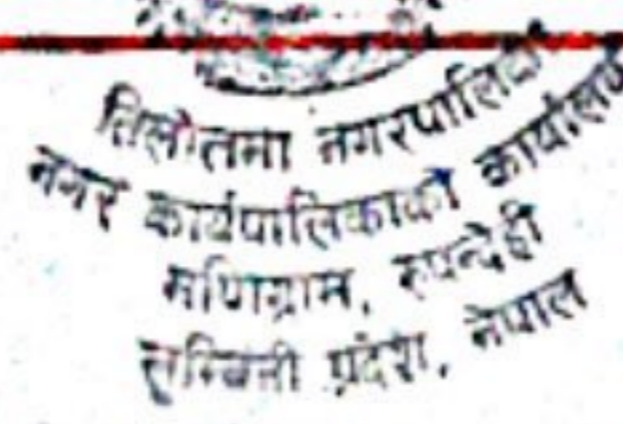 तिलोत्तमा नगरपालिका
नगर कार्यपालिकाको कार्यालय
मणिग्राम, रुपन्देही
लुम्बिनी प्रदेश, नेपाल